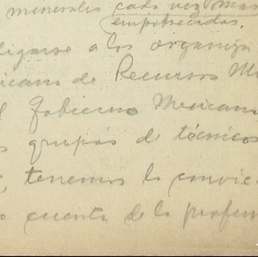 minerales cada vez mas
empobrecidas.
ligarse a los organiza
icano de Recursos Mi
l Gobierno Mexicano
s grupos de técnicos
tenemos la convic
o cuenta de la profun